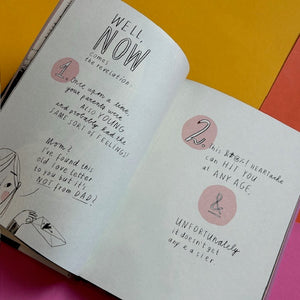 WELL,
NOW
comes
the revelation:
1. Once upon a time,
your parents were
ALSO YOUNG
and probably had the
SAME SORT OF FEELINGS!
Mom?
You found this
old love letter
to you but it's
NOT from DAD?
2. This
HEARTache
can HIT YOU
at ANY AGE.
3.
UNFORTUNATELY
it doesn't get
any easier.